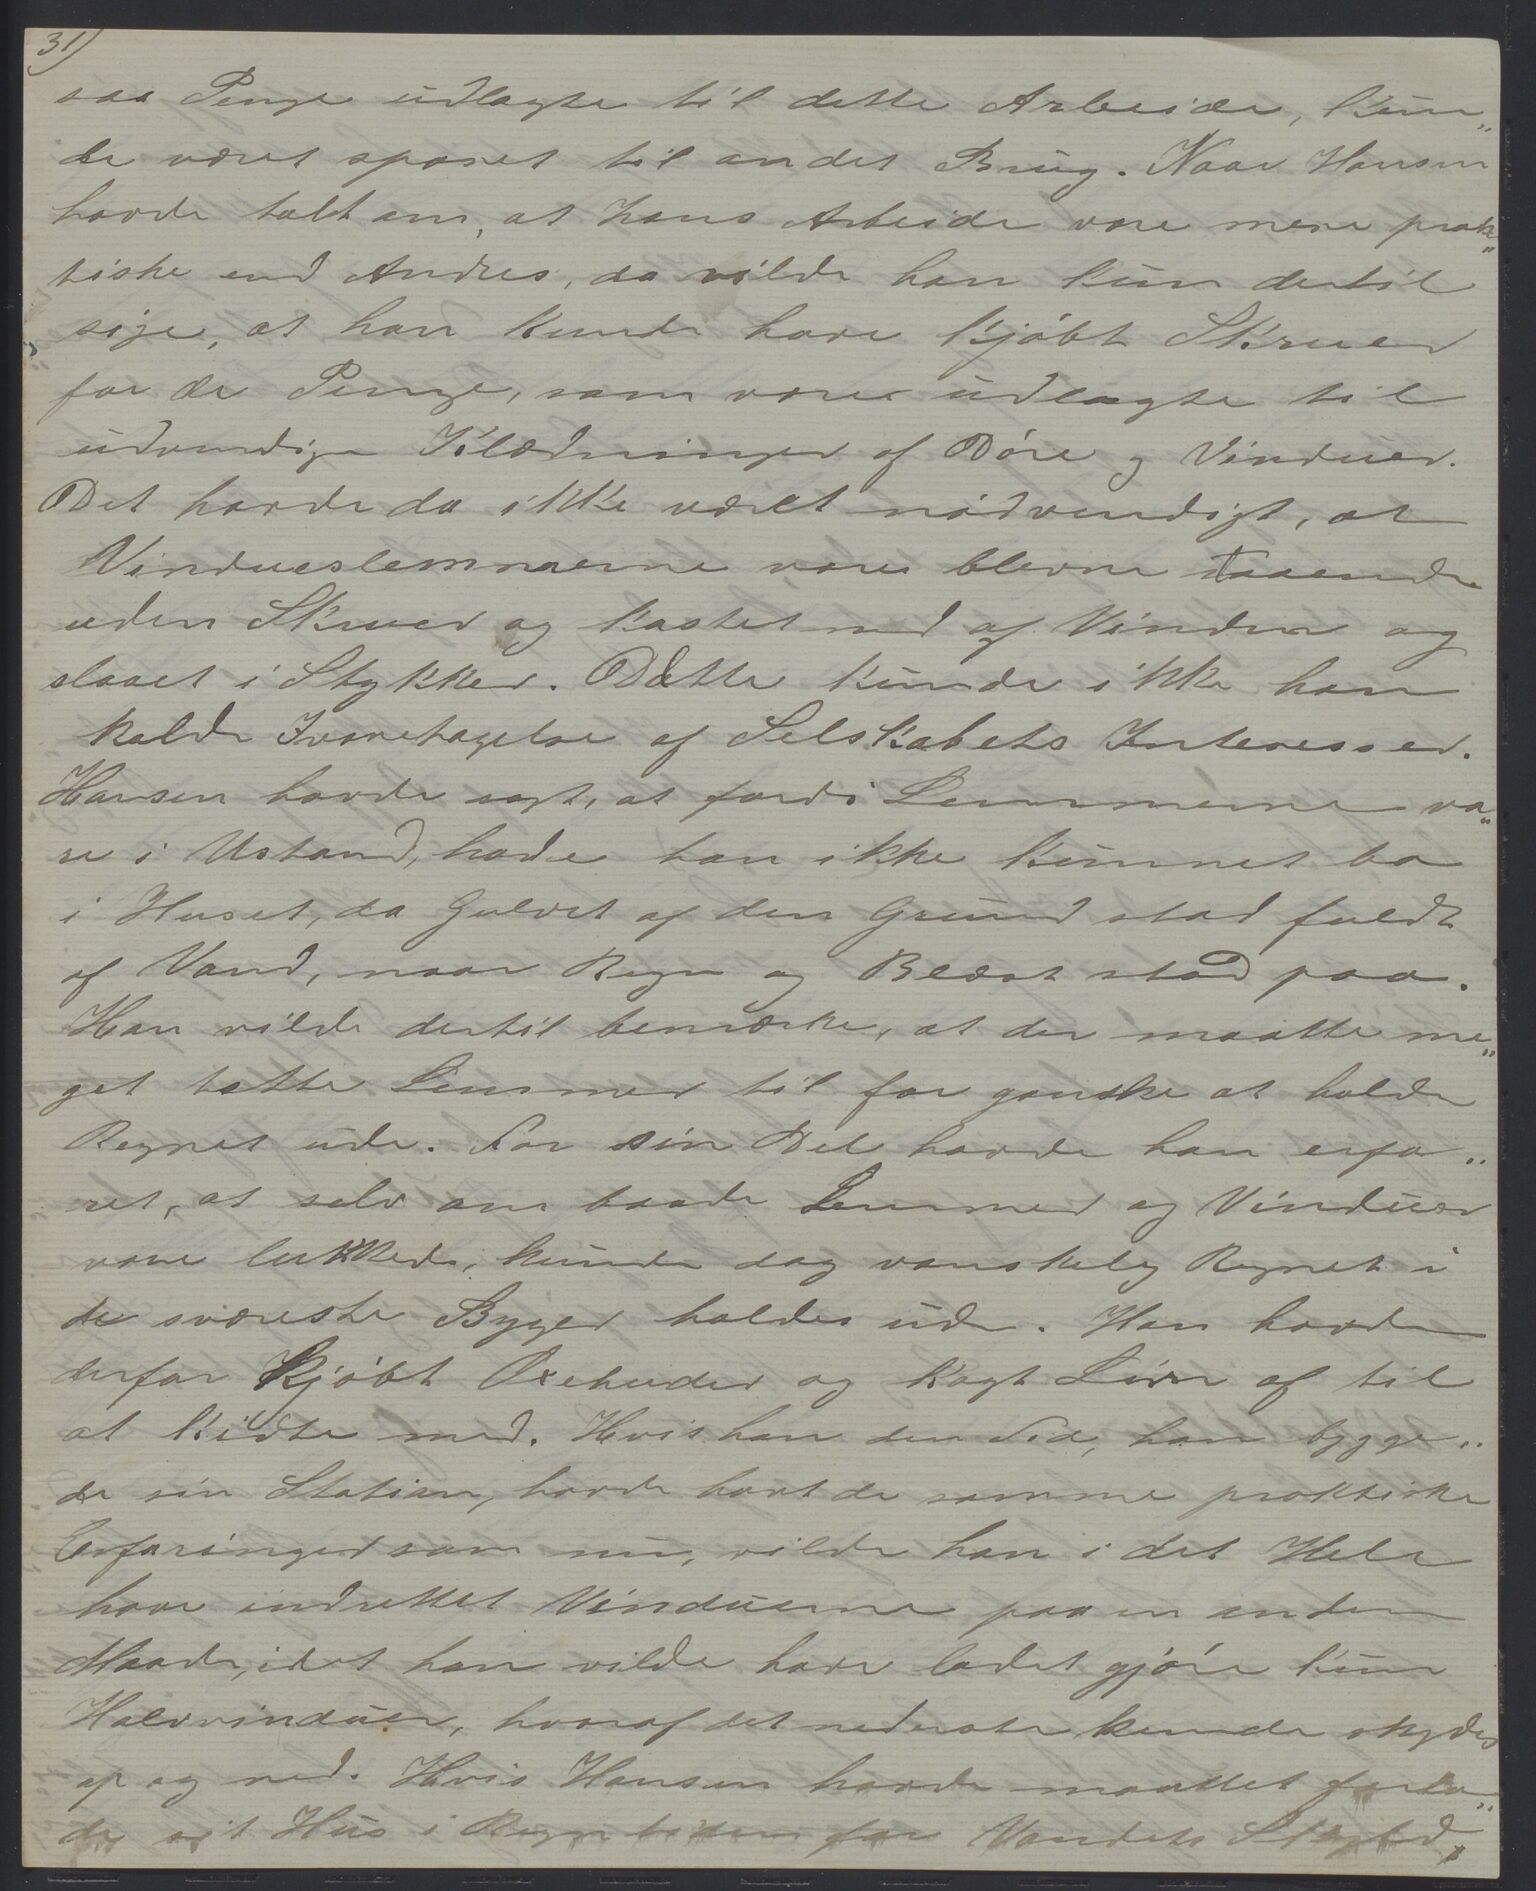 31)
saa Penge udlagte til dette Arbeide, kun„
de været sparet til andet Brug. Naar Hansen
havde talt om, at hans Arbeide vare mere prak„
tiske end Andres, da vilde han kun dertil
sige, at han kunde have kjöbt Skruer
for de Penge, som vare udlagte til
udvendige Klædninger af Döre og Vinduer.
Det havde da ikke været nödvendigt, at
Vindueslemmerne vare blevne staaende
uden Skruer og kastet ned af Vinden og
slaaet i Stykker. Dette kunde ikke han
kalde Ivaretagelse af Selskabets Interesser.
Hansen havde sagt, at fordi Lemmerne va„
re i Ustand, havde han ikke kunnet bo
i Huset, da Gulvet af den Grund stod fuldt
af Vand, naar Regn og Blæst stod paa.
Han vilde dertil bemærke, at der maatte me„
get tætte Lemmer til for ganske at holde
Regnet ude. For sin Del havde han erfa„
ret, at selv om baade Lemmer og Vinduer
vare lukkede, kunde dog vanskelig Regnet i
de sværeste Byger holdes ude. Han havde
derfor kjöbt Oxehuder og kogt Lim af til
at kitte med. Hvis han den Tid, han bygge„
de sin Station, havde havt de samme praktiske
Erfaringer som nu, vilde han i det Hele
have indrettet Vinduerne paa en anden
Maade, idet han vilde have ladet gjöre kun
Halvvinduer, hvoraf det nederste kunde skydes
op og ned. Hvis Hansen havde maattet forla„
de sit Hus i Regntiden for Vandets Skyld,